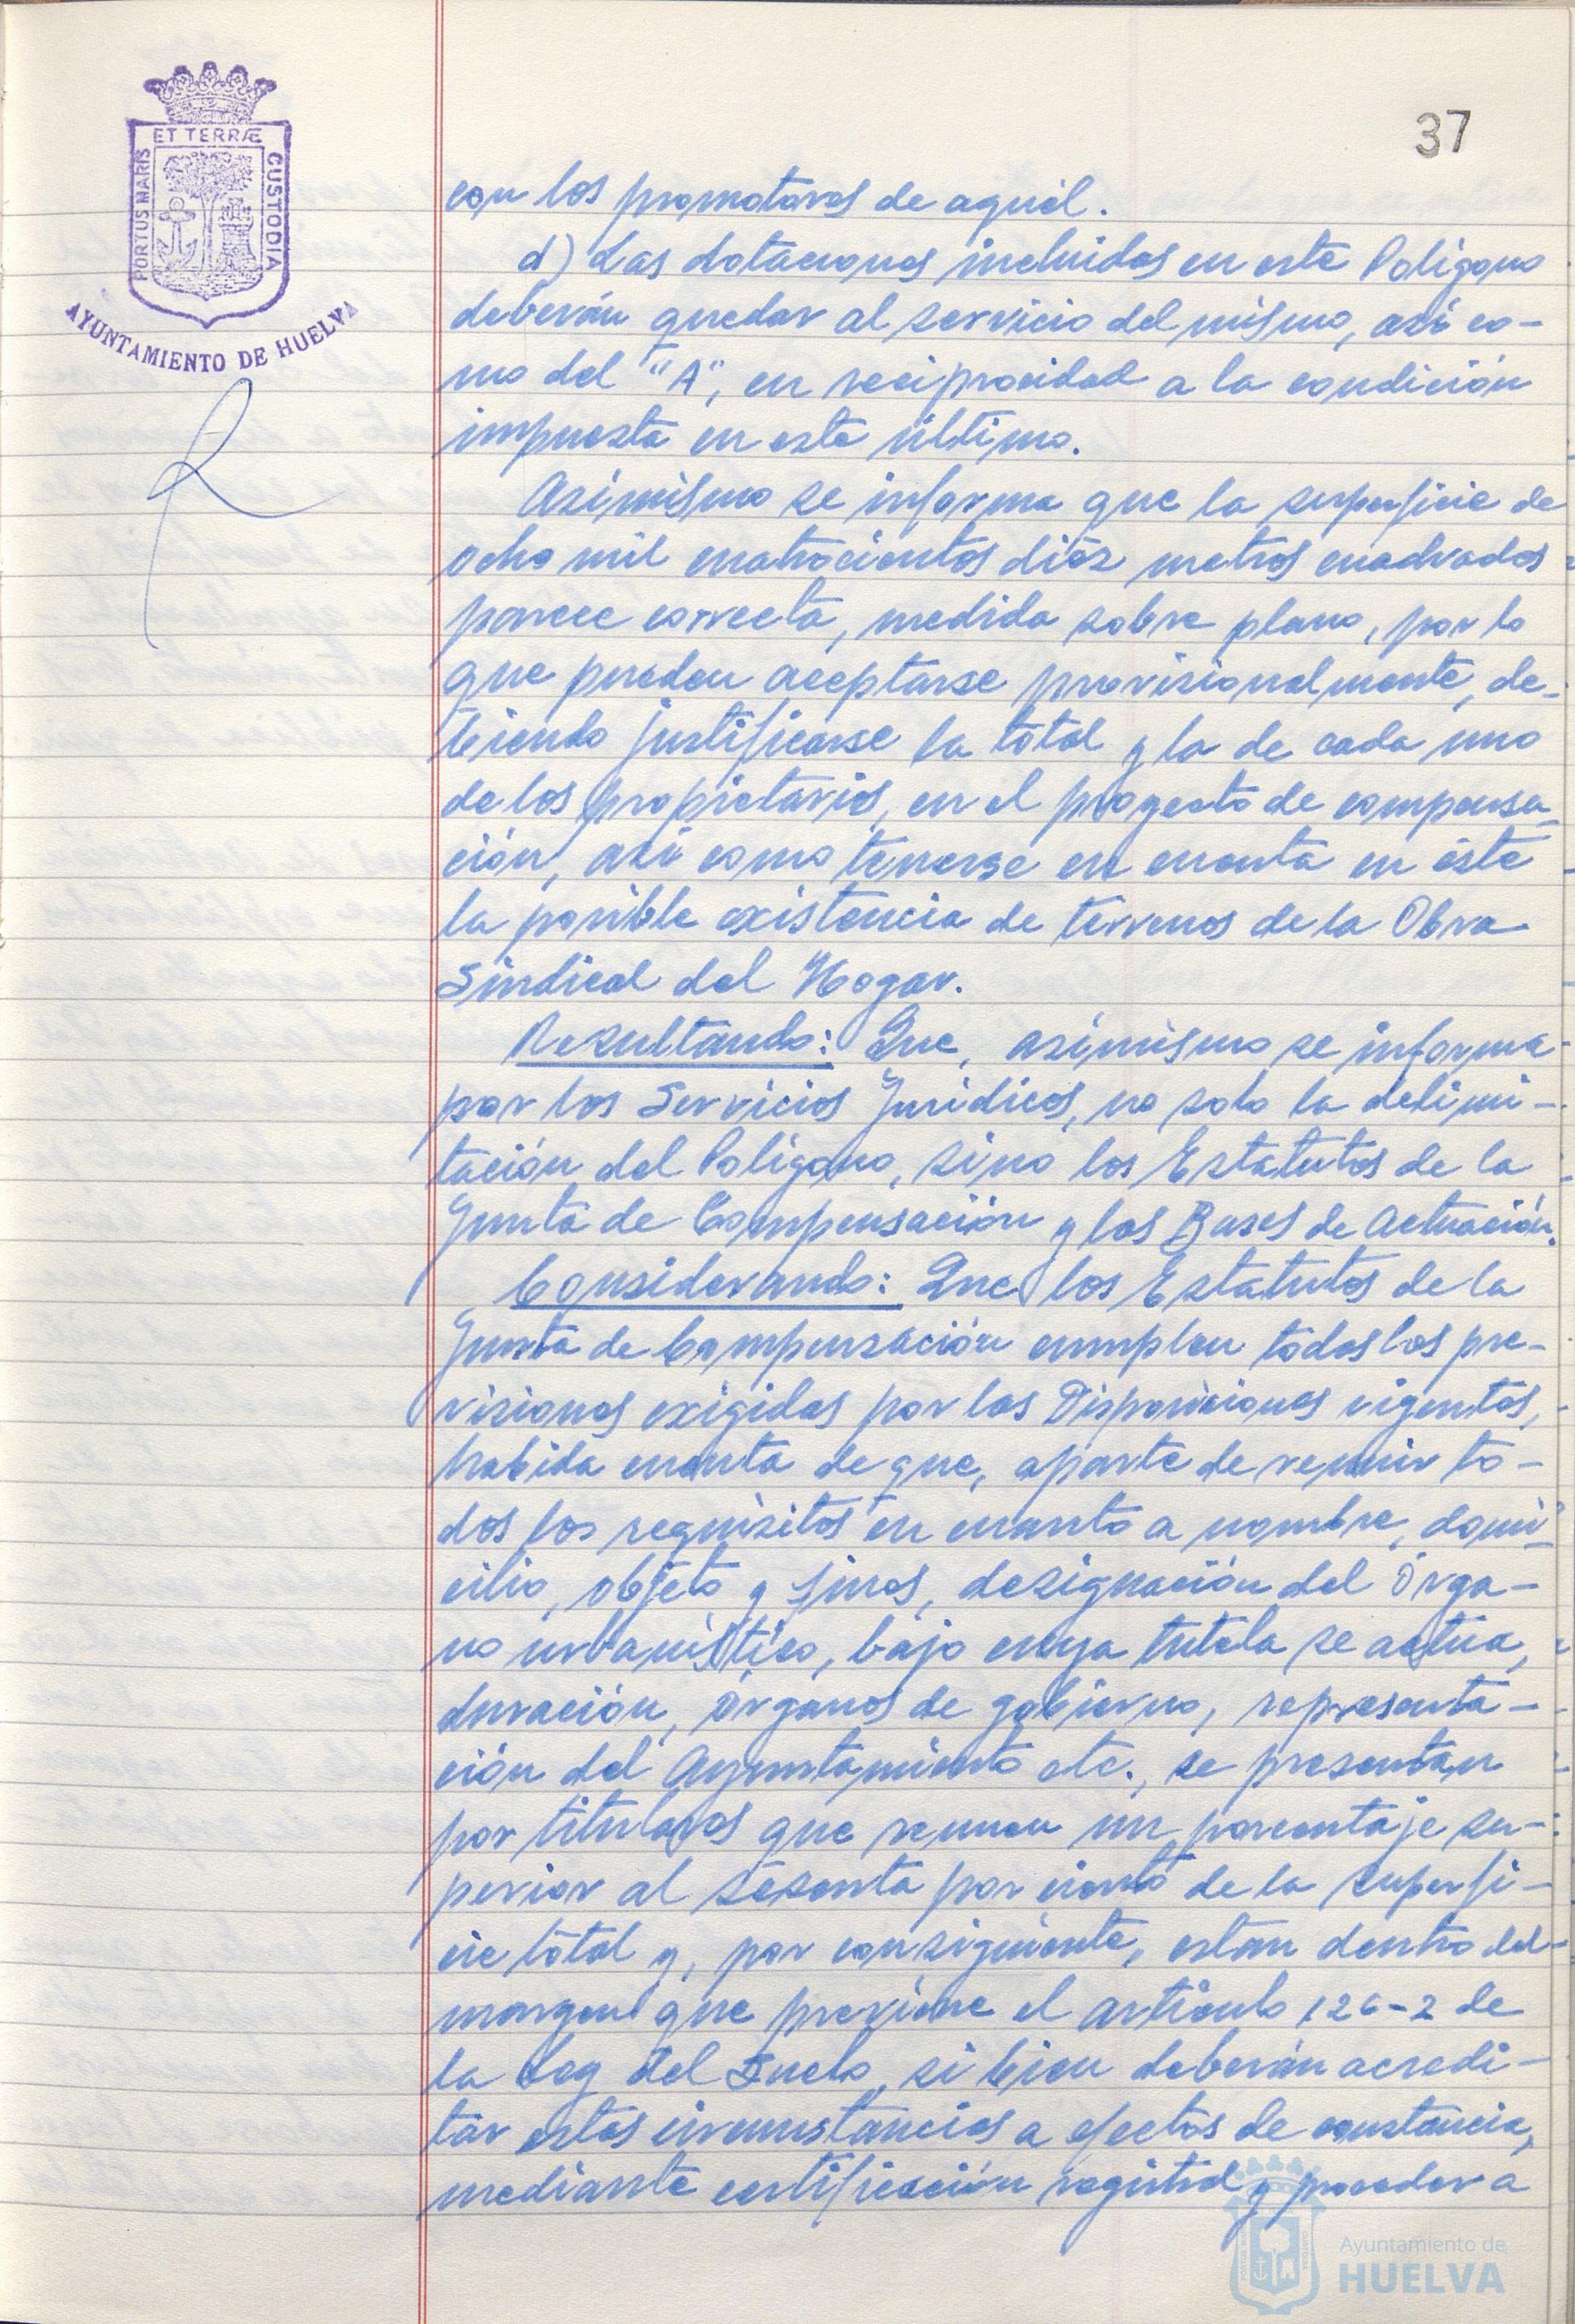 37
ET TERRÆ
PORTUS MARIS
CUSTODIA
AYUNTAMIENTO DE HUELVA
con los promotores de aquél.
d) Las dotaciones incluidas en este Polígono
deberán quedar al servicio del mismo, así co-
mo del "A", en reciprocidad a la condición
impuesta en este último.
Asimismo se informa que la superficie de
ocho mil cuatrocientos diez metros cuadrados
parece correcta, medida sobre plano, por lo
que pueden aceptarse provisionalmente, de-
biendo justificarse la total y la de cada uno
de los propietarios, en el proyecto de compensa-
ción, así como tenerse en cuenta en éste
la posible existencia de terrenos de la Obra
Sindical del Hogar.
Resultando: Que, asimismo se informa
por los Servicios Jurídicos, no solo la delimi-
tación del Polígono, sino los Estatutos de la
Junta de Compensación y las Bases de Actuación.
Considerando: Que los Estatutos de la
Junta de Compensación cumplen todas las pre-
visiones exigidas por las Disposiciones vigentes,
habida cuenta de que, aparte de reunir to-
dos los requisitos en cuanto a nombre, domi-
cilio, objeto y fines, designación del Órga-
no urbanístico, bajo cuya tutela se actúa,
duración, órganos de gobierno, representa-
ción del Ayuntamiento etc., se presentan
por titulares que reunen un porcentaje su-
perior al sesenta por ciento de la superfi-
cie total y, por consiguiente, estan dentro del
margen que previene el artículo 126-2 de
la Ley del Suelo, si bien deberán acredi-
tar estas circunstancias a efectos de constancia,
mediante certificación registral y proceder a
Ayuntamiento de
HUELVA